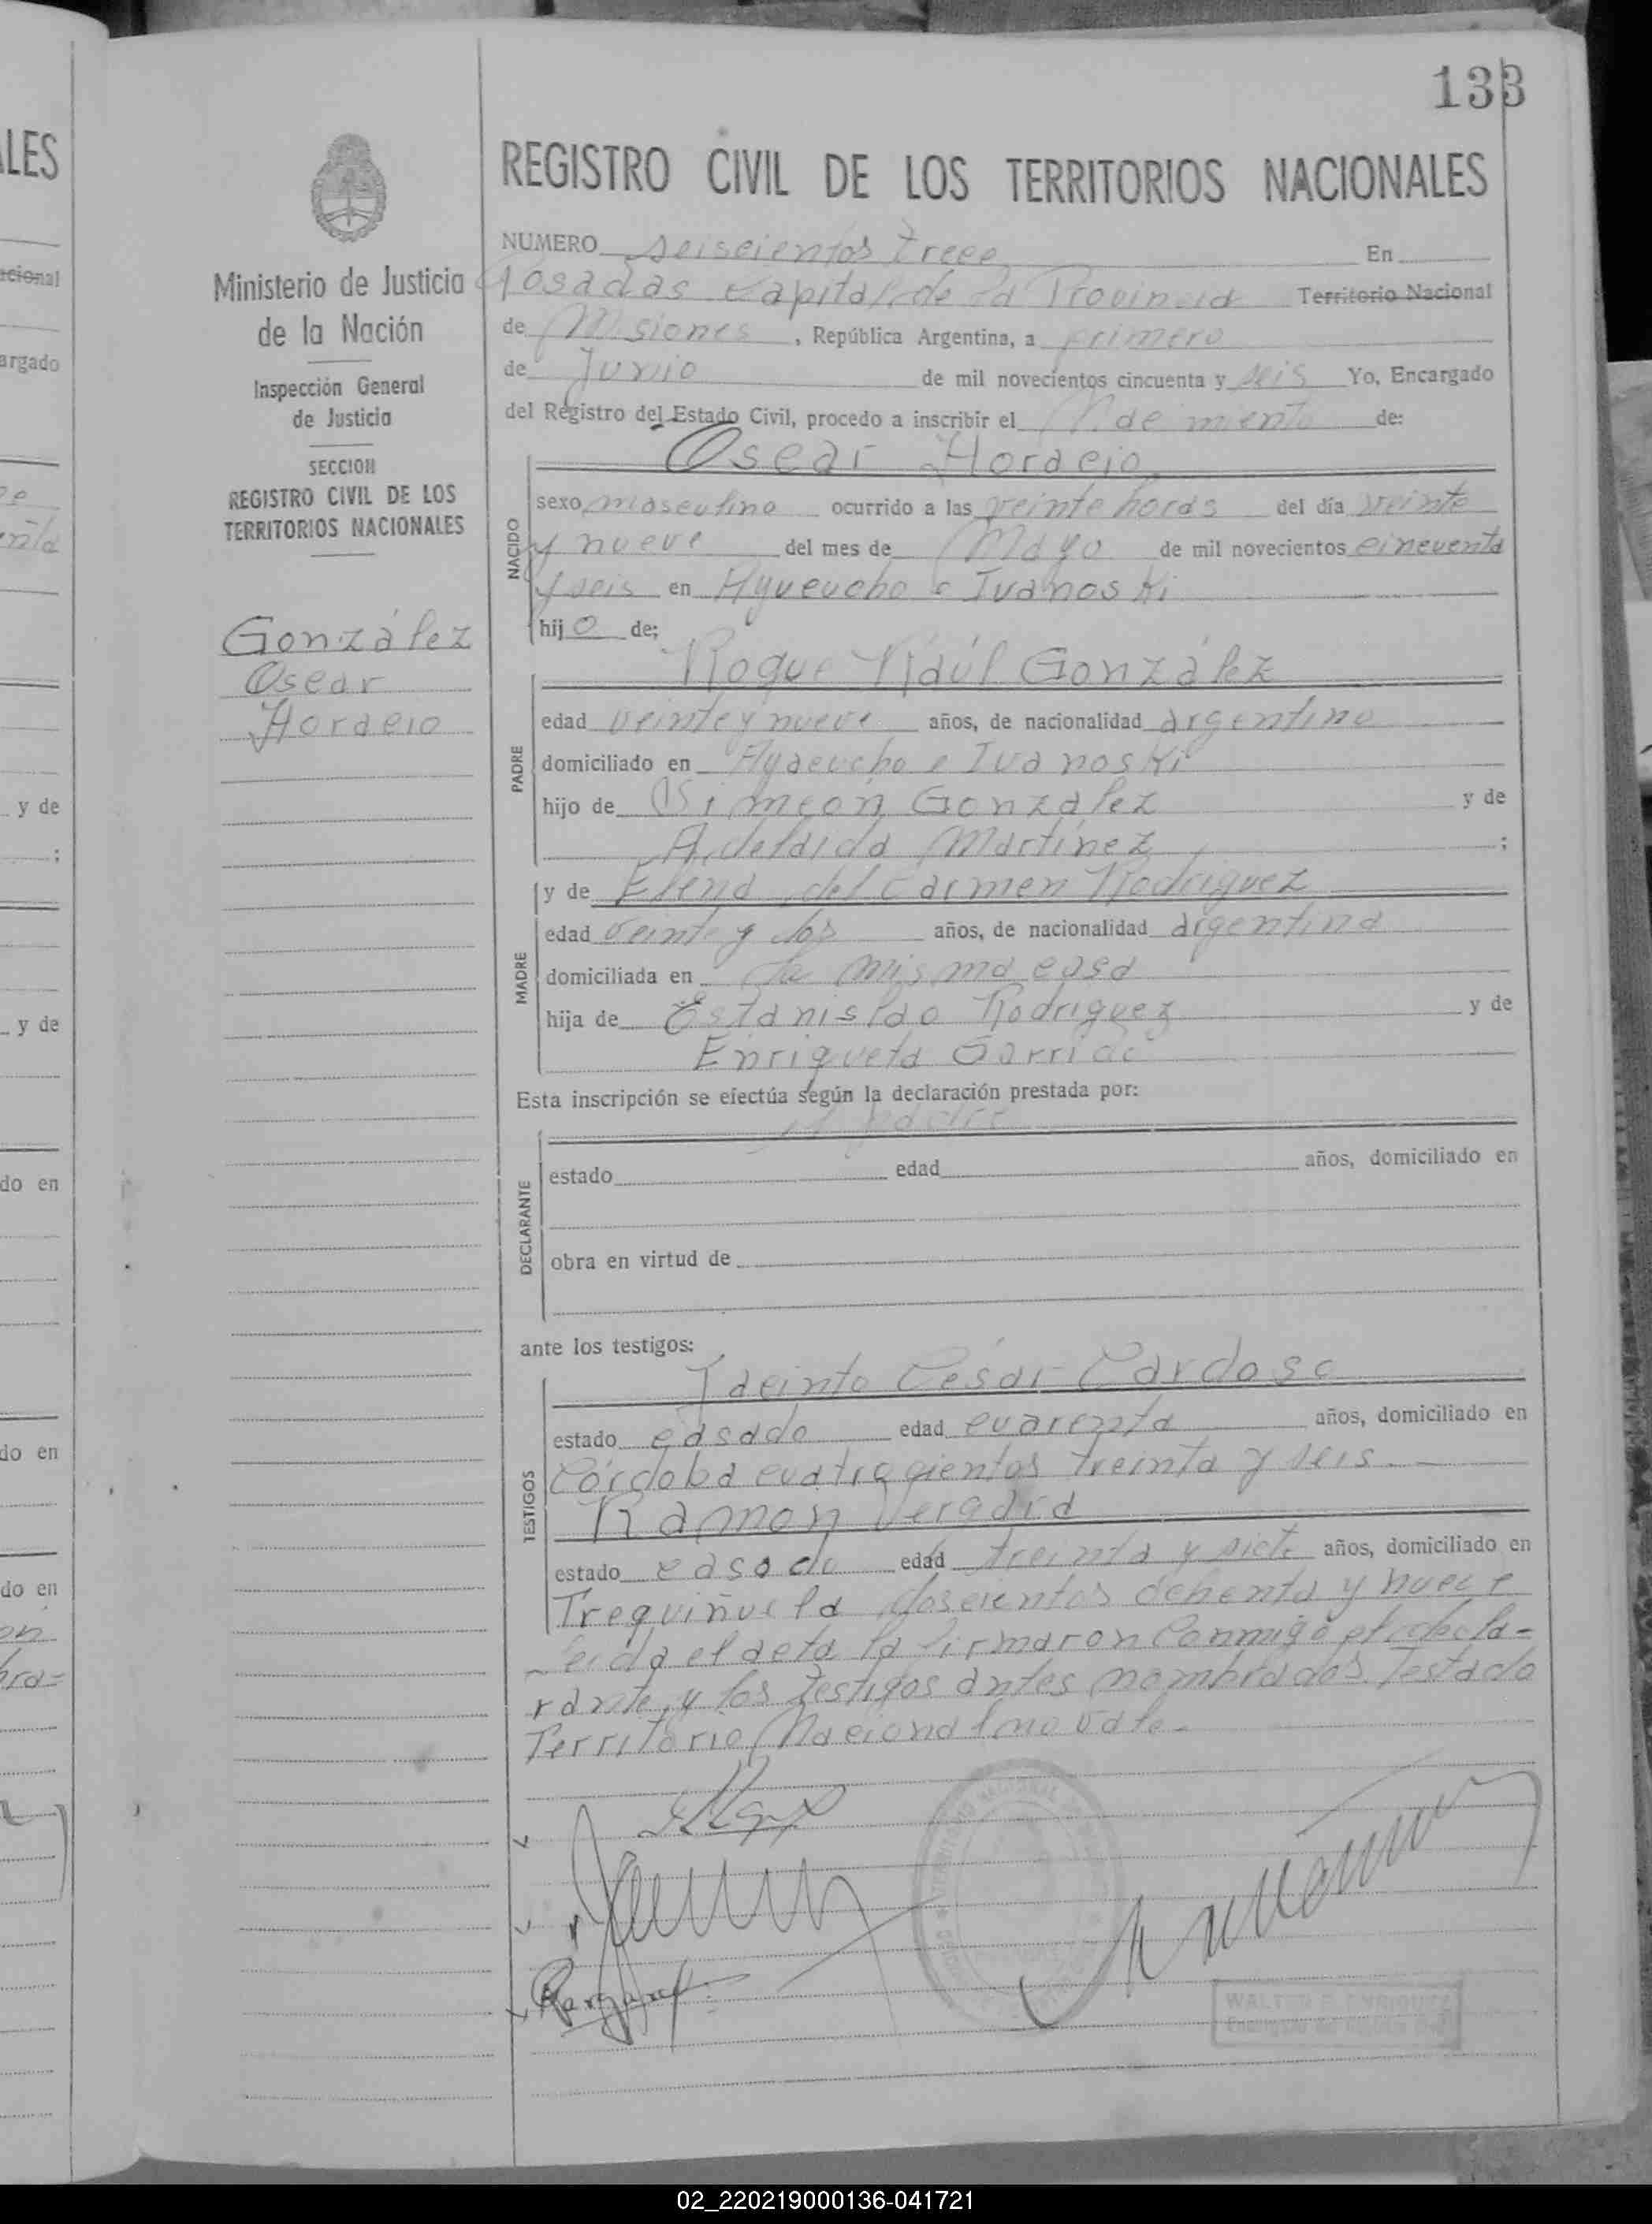 133
LES
REGISTRO CIVIL DE LOS TERRITORIOS NACIONALES
NUMERO seiscientos trece En
Posadas capital de la Provincia Territorio Nacional
de Misiones, República Argentina, a primero
de Junio de mil novecientos cincuenta y seis Yo, Encargado
del Registro del Estado Civil, procedo a inscribir el Nacimiento de:
Oscar Horacio
NACIDO
sexo masculino ocurrido a las veinte horas del día veinte
y nueve del mes de Mayo de mil novecientos cincuenta
y seis en Ayacucho e Ivanoski
hijo de;
Ministerio de Justicia
de la Nación
Inspección General
de Justicia
SECCION
REGISTRO CIVIL DE LOS
TERRITORIOS NACIONALES
González
Oscar
Horacio
Roque Raúl González
PADRE
edad veinte y nueve años, de nacionalidad argentino
domiciliado en Ayacucho e Ivanoski
hijo de Simeón González y de
Adelaida Martínez ;
MADRE
y de Elena del Carmen Rodríguez
edad veinte y dos años, de nacionalidad argentina
domiciliada en la misma casa
hija de Estanislao Rodríguez y de
Enriqueta Garrido
Esta inscripción se efectúa según la declaración prestada por:
el padre
DECLARANTE
estado edad años, domiciliado en
obra en virtud de
ante los testigos:
Jacinto César Cardoso
TESTIGOS
estado casado edad cuarenta años, domiciliado en
Córdoba cuatrocientos treinta y seis
Ramón Vergara
estado casado edad treinta y siete años, domiciliado en
Trequiñuela doscientos ochenta y nueve
Leida el acta la firmaron conmigo el decla-
rante y los testigos antes nombrados. Testado
Territorio Nacional no vale.
WALTER E. ENRIQUEZ
argado
y de
y de
do en
do en
do en
02_220219000136-041721